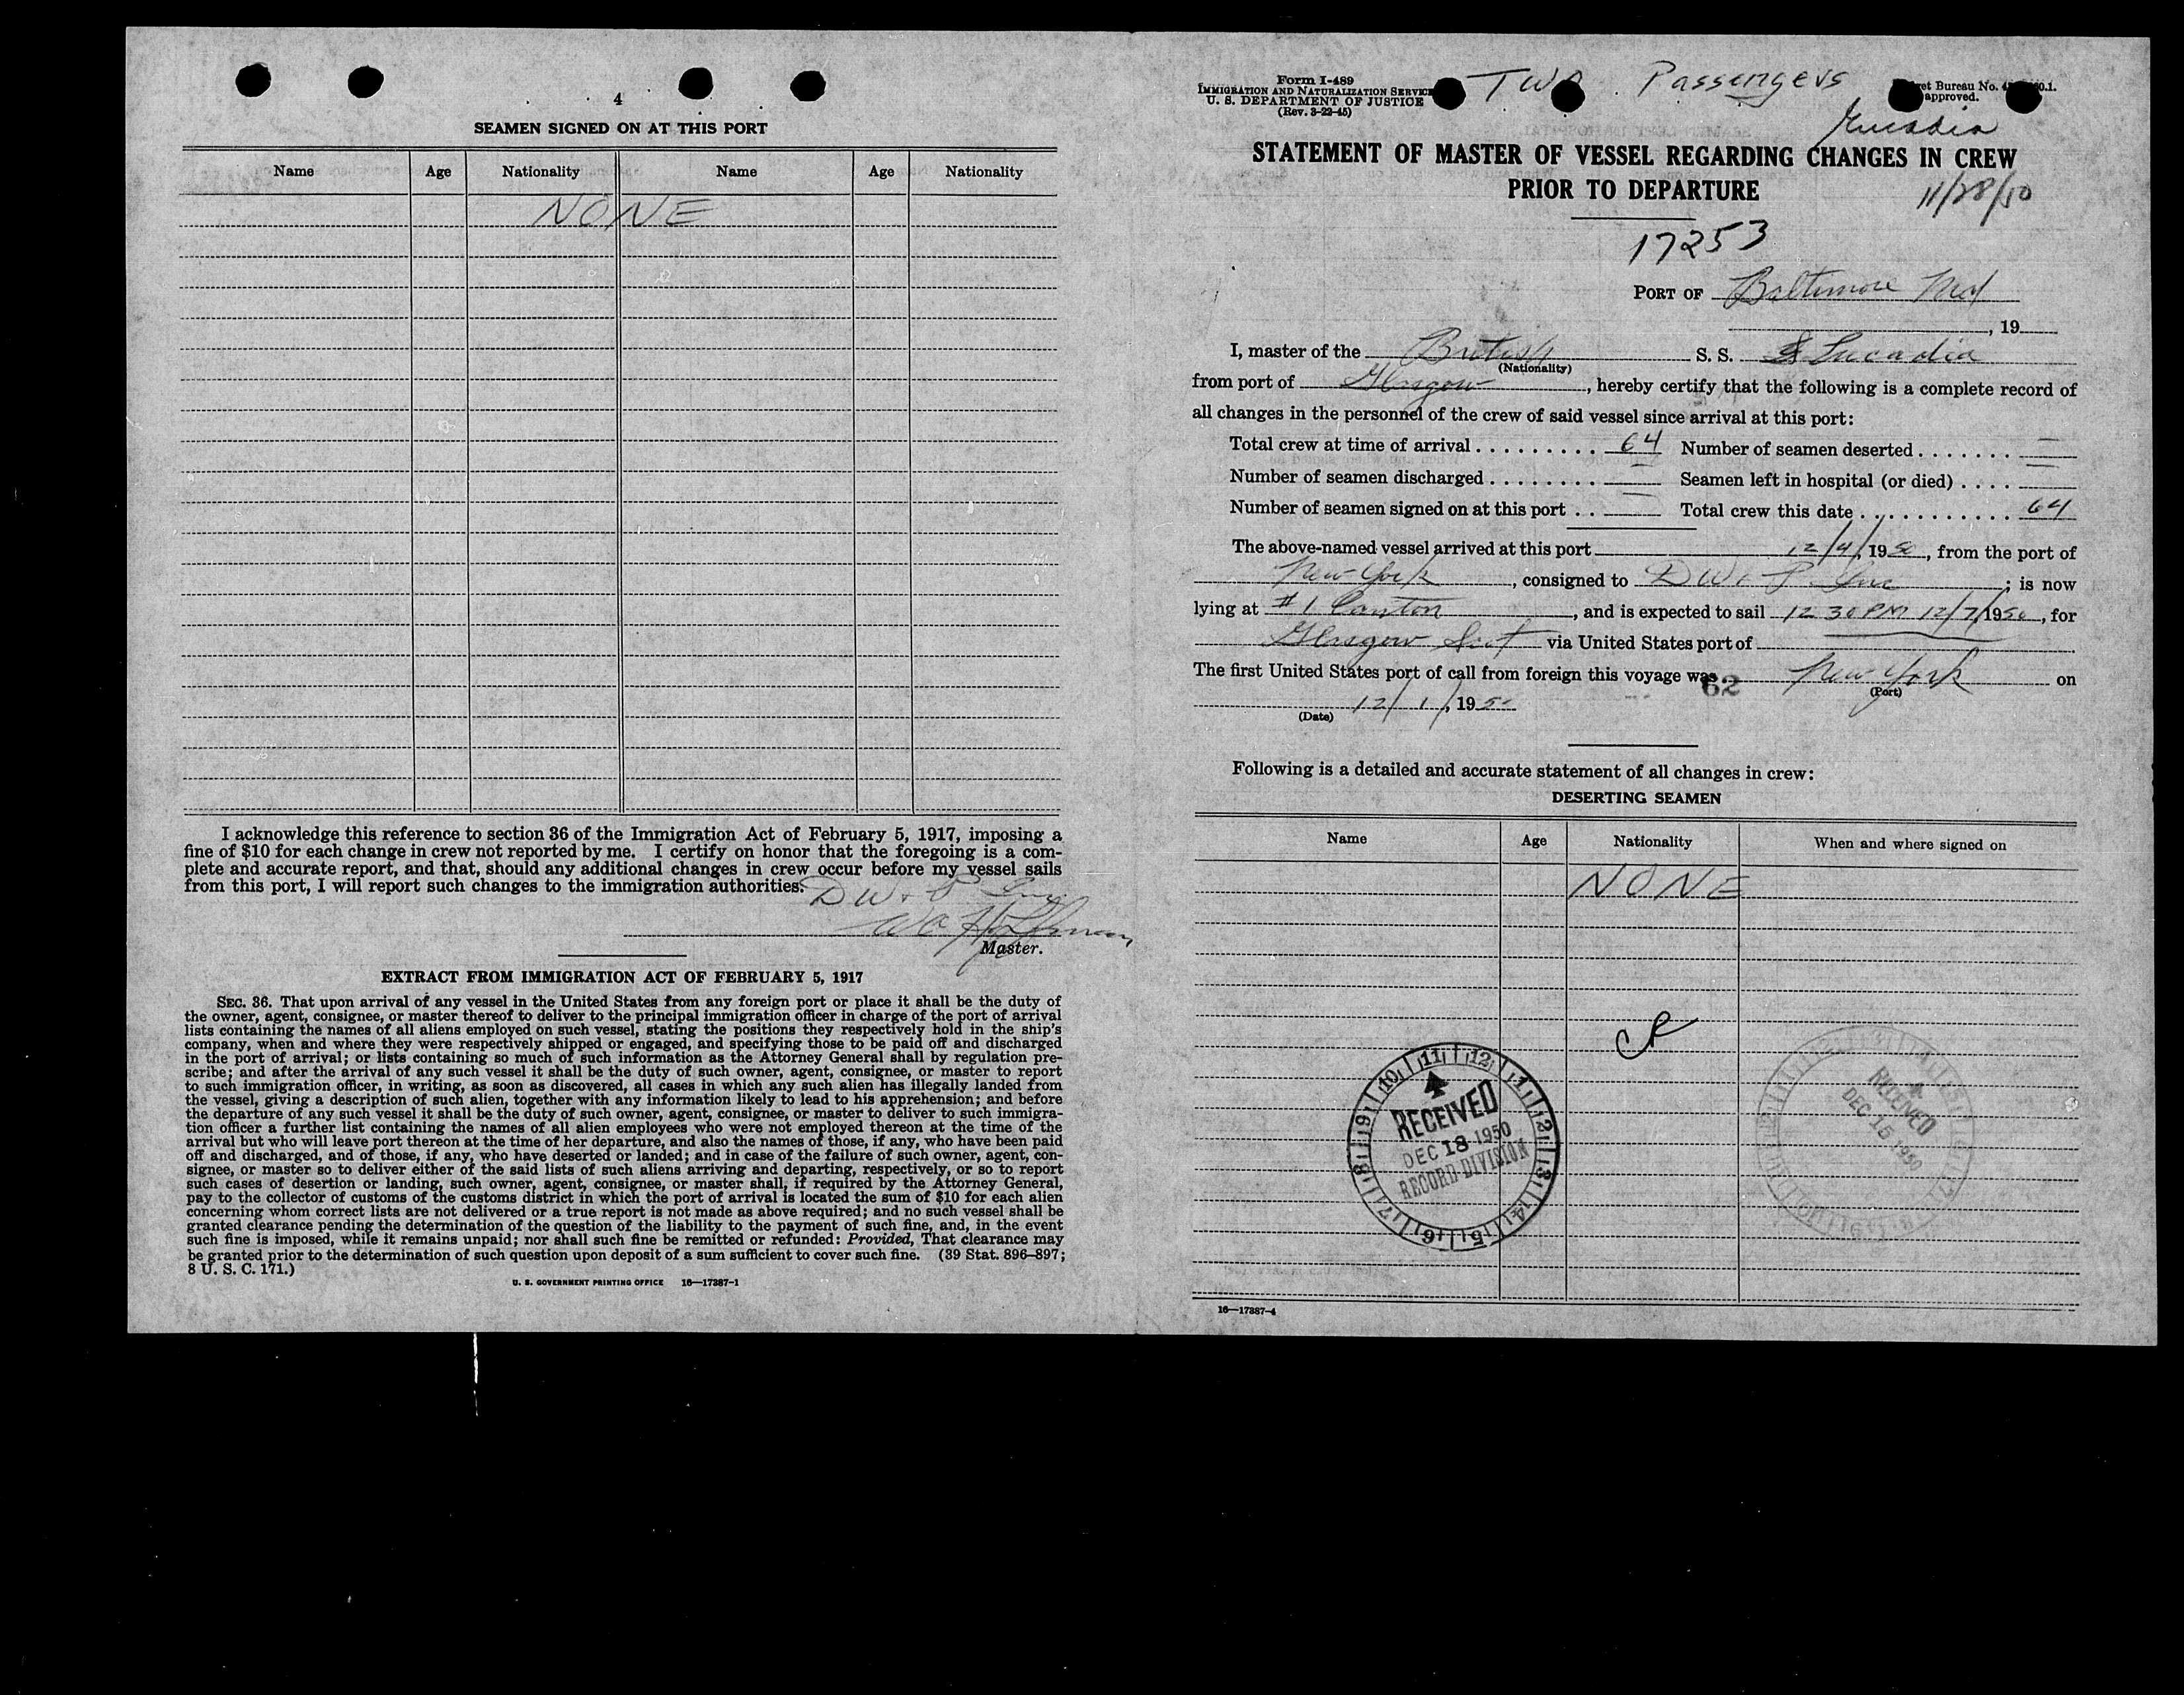 4
SEAMEN SIGNED ON AT THIS PORT
Name Age Nationality Name Age Nationality
NONE
I acknowledge this reference to section 36 of the Immigration Act of February 5, 1917, imposing a
fine of $10 for each change in crew not reported by me. I certify on honor that the foregoing is a com-
plete and accurate report, and that, should any additional changes in crew occur before my vessel sails
from this port, I will report such changes to the immigration authorities.
D W & P Inc
Master.
EXTRACT FROM IMMIGRATION ACT OF FEBRUARY 5, 1917
SEC. 36. That upon arrival of any vessel in the United States from any foreign port or place it shall be the duty of
the owner, agent, consignee, or master thereof to deliver to the principal immigration officer in charge of the port of arrival
lists containing the names of all aliens employed on such vessel, stating the positions they respectively hold in the ship's
company, when and where they were respectively shipped or engaged, and specifying those to be paid off and discharged
in the port of arrival; or lists containing so much of such information as the Attorney General shall by regulation pre-
scribe; and after the arrival of any such vessel it shall be the duty of such owner, agent, consignee, or master to report
to such immigration officer, in writing, as soon as discovered, all cases in which any such alien has illegally landed from
the vessel, giving a description of such alien, together with any information likely to lead to his apprehension; and before
the departure of any such vessel it shall be the duty of such owner, agent, consignee, or master to deliver to such immigra-
tion officer a further list containing the names of all alien employees who were not employed thereon at the time of the
arrival but who will leave port thereon at the time of her departure, and also the names of those, if any, who have been paid
off and discharged, and of those, if any, who have deserted or landed; and in case of the failure of such owner, agent, con-
signee, or master so to deliver either of the said lists of such aliens arriving and departing, respectively, or so to report
such cases of desertion or landing, such owner, agent, consignee, or master shall, if required by the Attorney General,
pay to the collector of customs of the customs district in which the port of arrival is located the sum of $10 for each alien
concerning whom correct lists are not delivered or a true report is not made as above required; and no such vessel shall be
granted clearance pending the determination of the question of the liability to the payment of such fine, and, in the event
such fine is imposed, while it remains unpaid; nor shall such fine be remitted or refunded: Provided, That clearance may
be granted prior to the determination of such question upon deposit of a sum sufficient to cover such fine. (39 Stat. 896–897;
8 U. S. C. 171.)
U. S. GOVERNMENT PRINTING OFFICE 16—17387-1
Form I-489
IMMIGRATION AND NATURALIZATION SERVICE
U. S. DEPARTMENT OF JUSTICE
(Rev. 3-22-45)
Two Passengers
Bureau No.
approved.
STATEMENT OF MASTER OF VESSEL REGARDING CHANGES IN CREW
PRIOR TO DEPARTURE
11/28/50
17253
PORT OF Baltimore Md
, 19
I, master of the British S. S. Lucadia
(Nationality)
from port of Glasgow, hereby certify that the following is a complete record of
all changes in the personnel of the crew of said vessel since arrival at this port:
Total crew at time of arrival . . . . . . . . . 64 Number of seamen deserted . . . . . . . —
Number of seamen discharged . . . . . . . . — Seamen left in hospital (or died) . . . . —
Number of seamen signed on at this port . . — Total crew this date . . . . . . . . . . . . 64
The above-named vessel arrived at this port 12/4/, 1950, from the port of
New York, consigned to D W & P Inc; is now
lying at #1 Canton, and is expected to sail 12 30 PM 12/7/, 1950, for
Glasgow Scot via United States port of
The first United States port of call from foreign this voyage was New York on
62
(Port)
12/1/, 1950
(Date)
Following is a detailed and accurate statement of all changes in crew:
DESERTING SEAMEN
Name Age Nationality When and where signed on
NONE
CR
11 12 1 2 3 4 5 6 7 8 9 10
RECEIVED
DEC 18 1950
RECORD DIVISION
RECEIVED
DEC 15 1950
16—17387-4